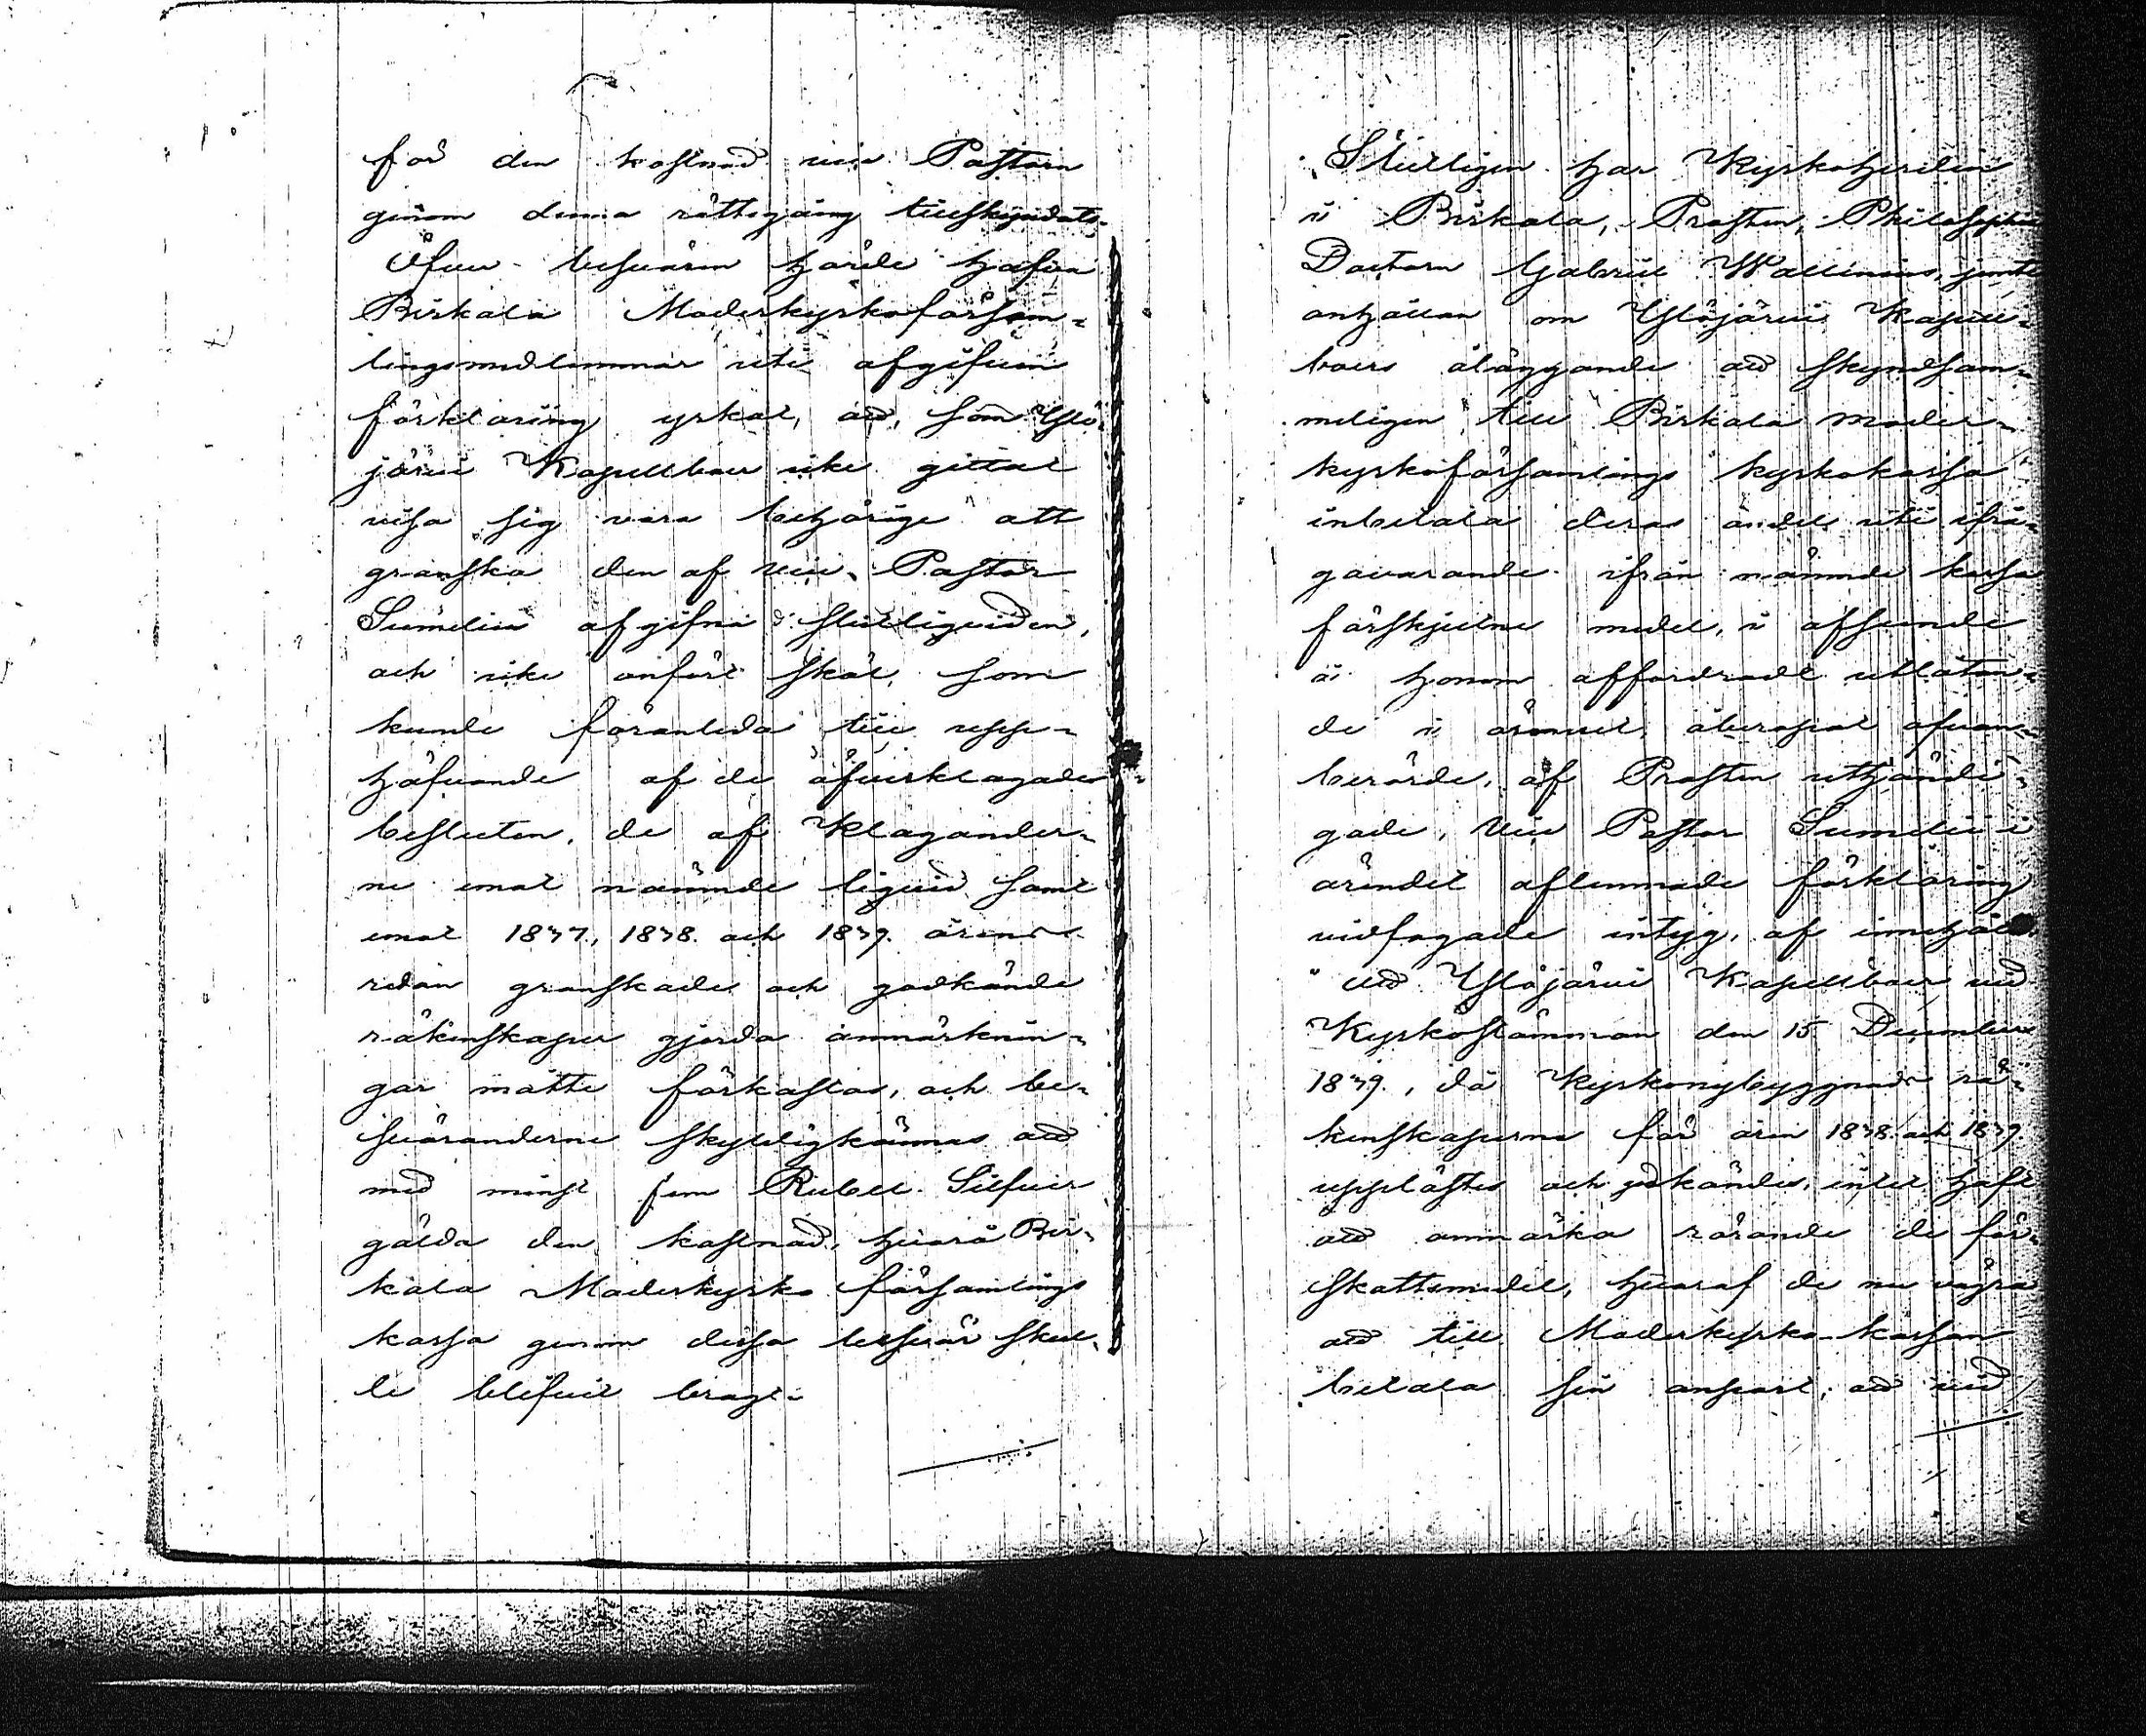 för den kostnad vice Pastorn
genom denna rättegång tillskyndats.
Öfver besvären hörde hafva
Birkala Moderkyrkoförsam-
lingsmedlemmar uti afgifven
förklaring yrkat, att, som Ylö-
järvi Kapellboer icke gittat
visa sig vara behörige att
granska den af vice Pastor
Sumelius afgifna slutliquiden,
och icke anfört skäl som
kunde föranleda till upp-
häfvande af de öfverklagade
besluten, de af Klagander-
ne emot nämnde liquid samt
emot 1837, 1838 och 1839 årens
redan granskade och godkände
räkenskaper gjorda anmärknin-
gar måtte förkastas, och be-
sväranderne skyldigkännas att
med minst fem Rubel Silfver
gälda den kostnad, hvarå Bir-
kala Moderkyrko församlings
kassa genom dessa besvär skul-
le blifvit bragt.
Slutligen har Kyrkoherden
i Birkala, Prosten, Philosophie
Doctorn Gabriel Wallenius, jemte
anhållan om Ylöjärvi Kapell-
boers åläggande att skyndsam-
meligen till Birkala moder-
kyrkoförsamlings kyrkokassa
inbetala deras andel uti ifrå-
gavarande ifrån nämnde kassa
förskjutne medel, i afseende
å honom affordradt utlåtan-
de i ämnet, åberopat ofvan-
berörde, af Prosten uthändi-
gade, vice Pastor Sumelii i
ärendet aflemnade förklaring
vidfogade intyg, af innehåll
"att Ylöjärvi Kapellboer vid
Kyrkostämman den 15 December
1839, då Kyrkonybyggnads rä-
kenskaperne för åren 1838 och 1839
upplästes och godkändes, intet haft
att anmärka rörande de för-
skottsmedel, hvaraf de nu vägra
att till Moderkyrko-kassan
betala sin anpart; att vid